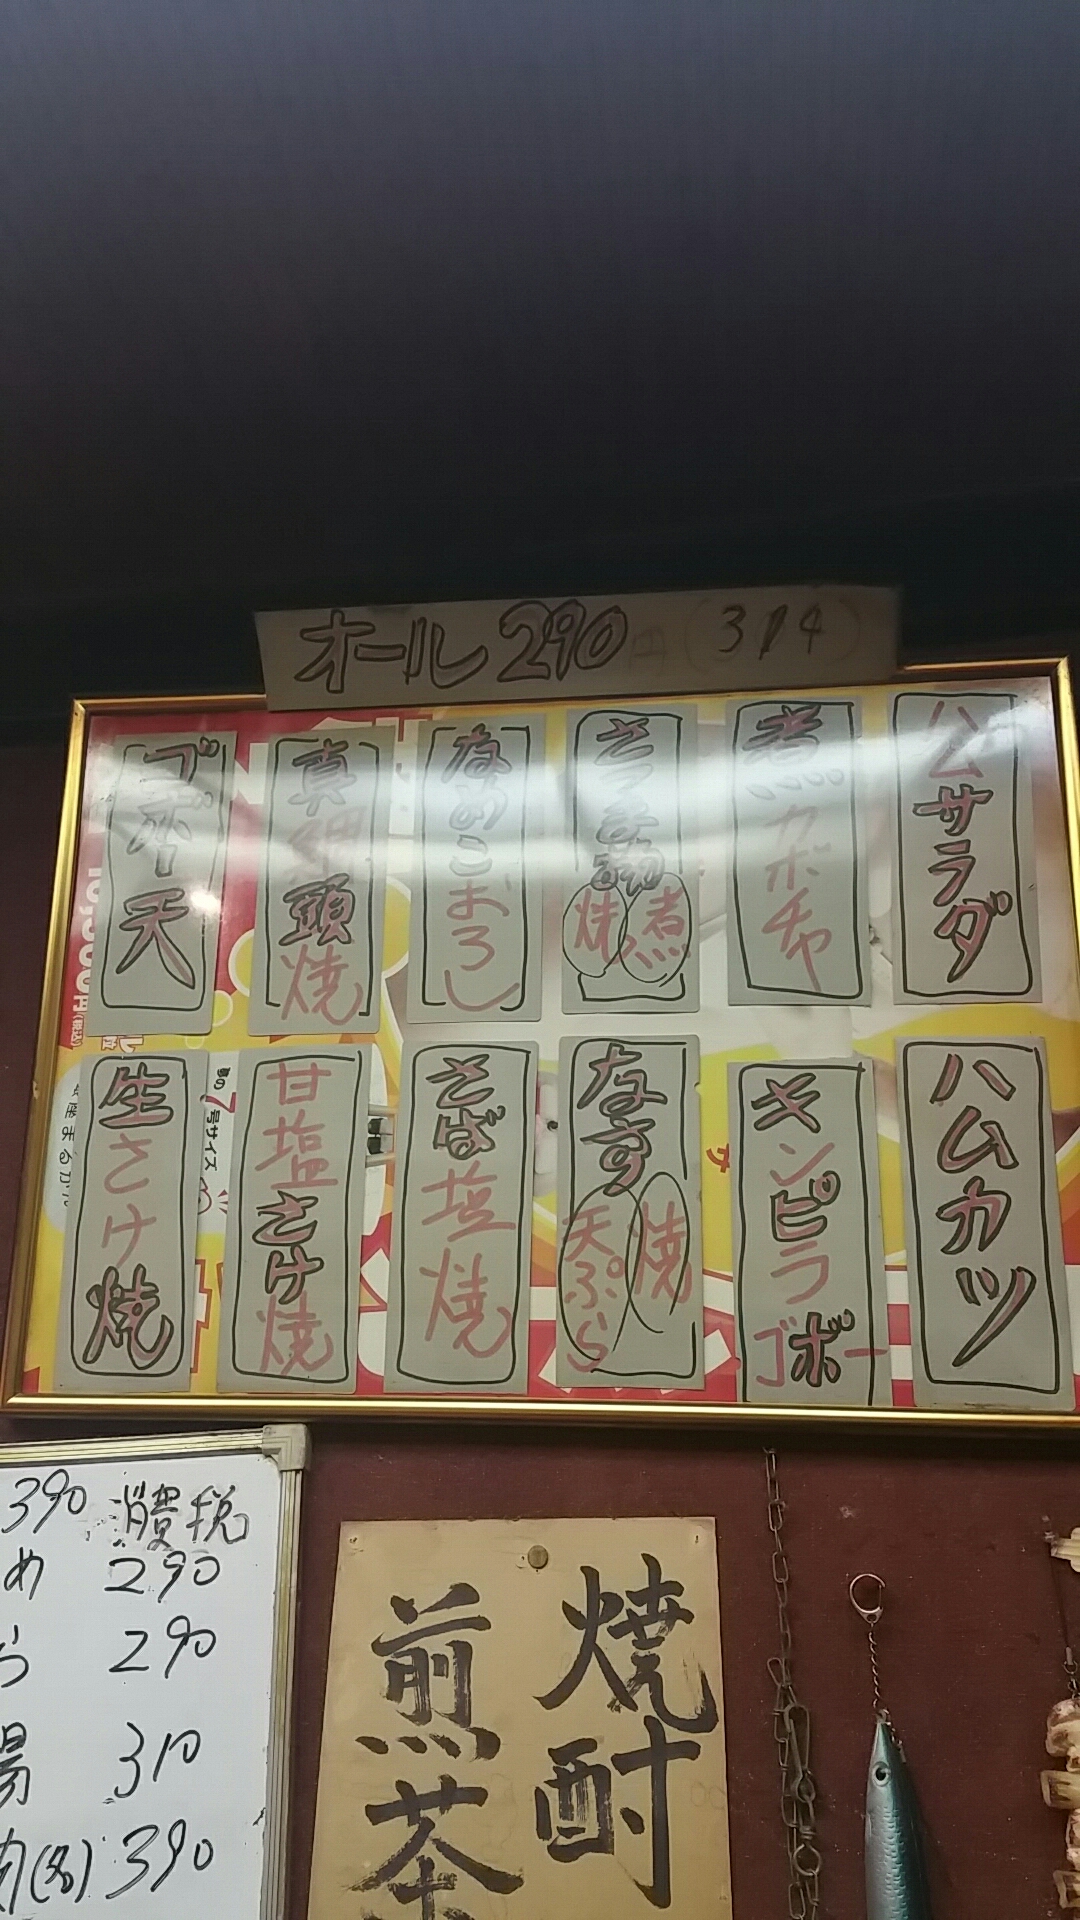 オール290円(314)
ハムサラダ
煮カボチャ
さつま揚
焼
煮
なめこおろし
真鯛頭焼
ゴボー天
ハムカツ
キンピラゴボー
なす
焼
天ぷら
さば塩焼
甘塩さけ焼
生さけ焼
号サイズ
390 消費税
め 290
290
湯 310
390
焼酎
煎茶